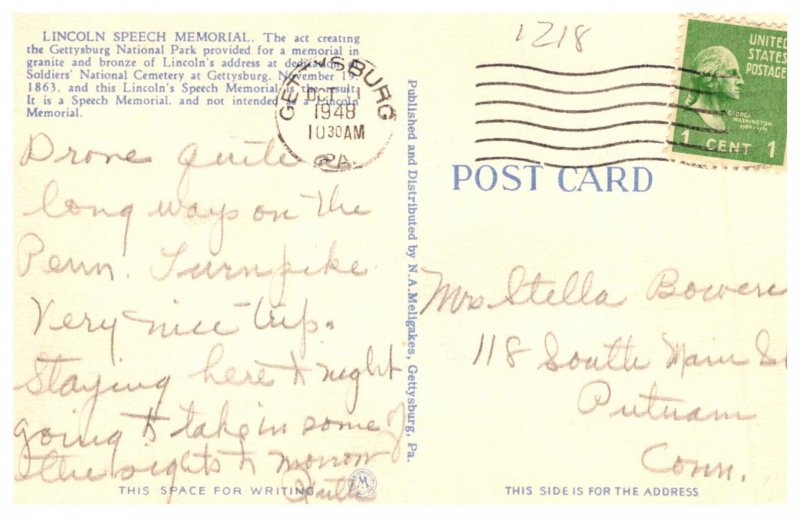 LINCOLN SPEECH MEMORIAL. The act creating
the Gettysburg National Park provided for a memorial in
granite and bronze of Lincoln's address at dedication of
Soldiers' National Cemetery at Gettysburg, November 19,
1863, and this Lincoln's Speech Memorial is the result.
It is a Speech Memorial, and not intended as a Lincoln
Memorial.
GETTYSBURG
OCT 11
1948
10 30 AM
PA.
1218
UNITED
STATES
POSTAGE
GEORGE
WASHINGTON
1 CENT 1
POST CARD
Drove quite a
long ways on the
Penn. Turnpike
Very nice trip.
Staying here to night
going to take in some of
the sights to morrow
Published and Distributed by N.A.Meligakes, Gettysburg, Pa.
Mrs Stella Bowers
118 South Main St
Putnam
Conn.
THIS SPACE FOR WRITING
M
THIS SIDE IS FOR THE ADDRESS